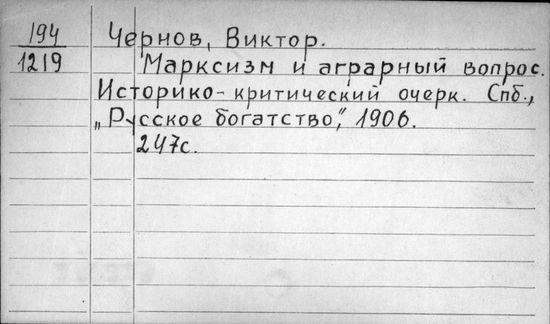 194 Чернов, Виктор.
1219 Марксизм и аграрный вопрос.
Историко-критический очерк. Спб.,
„Русское богатство", 1906.
247с.